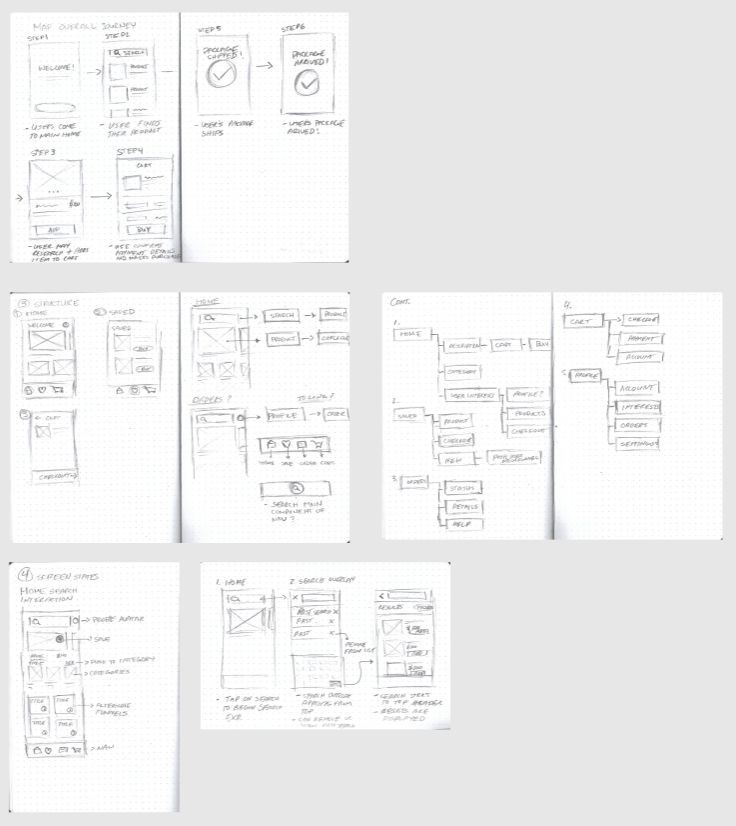 MAP OVERALL JOURNEY
STEP1
WELCOME!
- USERS COME
TO MAIN HOME
STEP2
SEARCH
PRODUCT
PRODUCT
- USER FINDS
THEIR PRODUCT
STEP 3
$20
ADD
- USER MAY
RESEARCH + ADDS
ITEM TO CART
STEP4
CART
BUY
PAYMENT DETAILS
AND MAKES PURCHASE
STEP 5
PACKAGE
SHIPPED!
- USER'S PACKAGE
SHIPS
STEP6
PACKAGE
ARRIVED!
- USERS PACKAGE
ARRIVED!
③ STRUCTURE
① HOME
WELCOME
② SAVED
SAVED
BUY
BUY
③
← CART
CHECKOUT→
HOME
SEARCH
PRODUCT
PRODUCT
CHECKOUT
ORDERS?
TO LONG?
PROFILE
ORDER
HOME SAVE ORDER CART
- SEARCH MAIN
COMPONENT OF
NAV?
CONT.
1.
HOME
CART
BUY
CATEGORY
USER INTERESTS
PROFILE?
PRODUCTS
CHECKOUT
2.
SAVED
PRODUCT
CHECKOUT
3.
ORDERS
STATUS
DETAILS
HELP
4.
CART
CHECKOUT
PAYMENT
ACCOUNT
5.
PROFILE
ACCOUNT
INTERESTS
ORDERS
SETTINGS
④ SCREEN STATES
HOME SEARCH
INTERACTION
PROFILE AVATAR
SAVE
PUSH TO CATEGORY
CATEGORIES
TITLE
TITLE
TITLE
TITLE
ALTERNATE
FUNNELS
NAV
1. HOME
- TAP ON SEARCH
TO BEGIN SEARCH
2. SEARCH OVERLAY
PAST SEARCH X
PAST .. X
PAST X
REMOVE
FROM LIST
- SEARCH OVERLAY
APPEARS FROM
TOP
RESULTS
- SEARCH STICKY
TO TOP HEADER
- RESULTS ARE
DISPLAYED